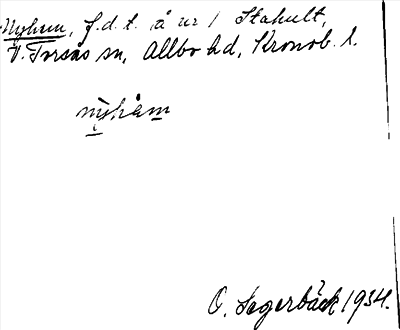 Nyhem, f.d.t. å ur / Stahult,
V. Torsås sn, Allbo hd, Kronob. l.
nyhàm
O. Segerbäck 1934.